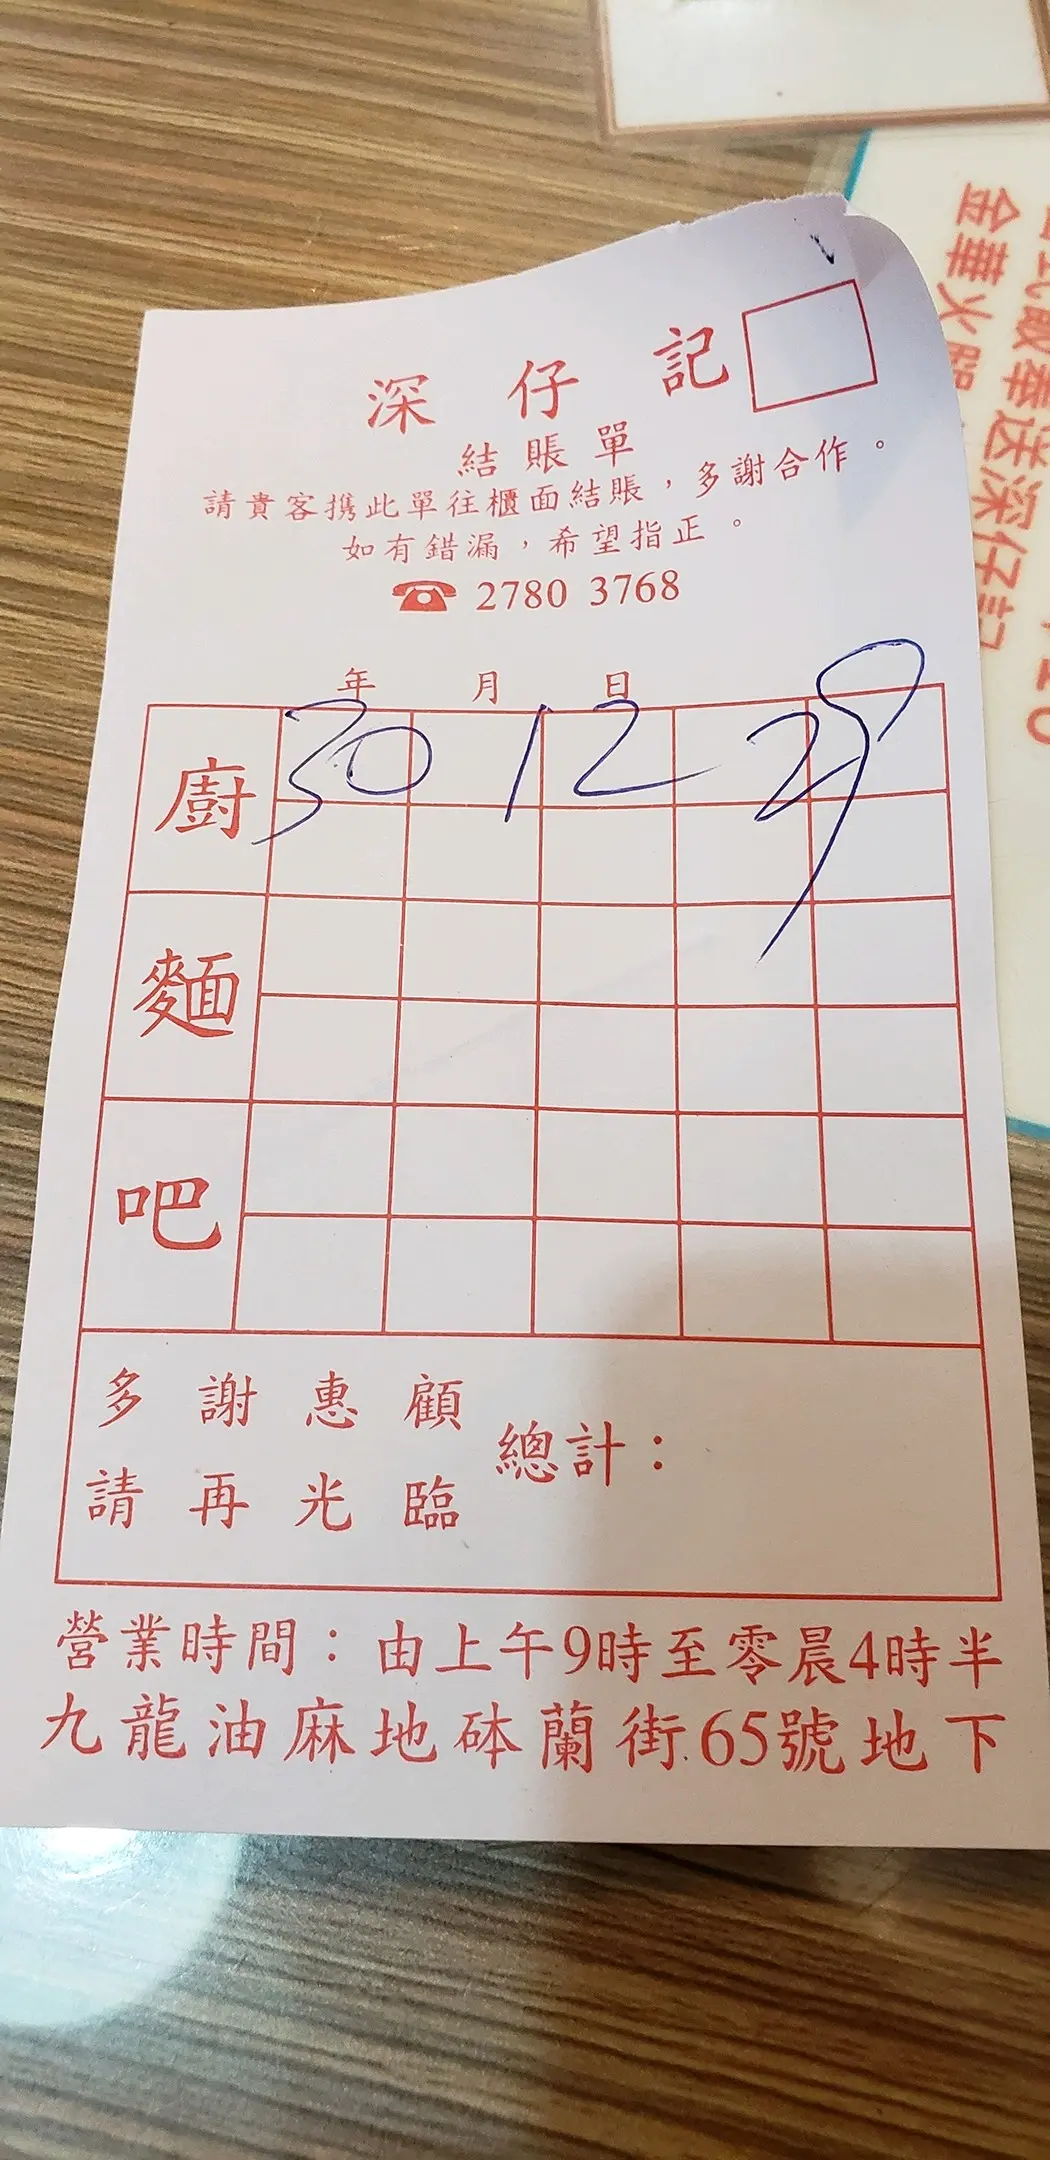 深仔記
結賬單
請貴客携此單往櫃面結賬，多謝合作。
如有錯漏，希望指正。
☎ 2780 3768
年 月 日
廚 30 12 29
麵
吧
多謝惠顧
請再光臨
總計：
營業時間：由上午9時至零晨4時半
九龍油麻地砵蘭街65號地下
金華火
送深仔記